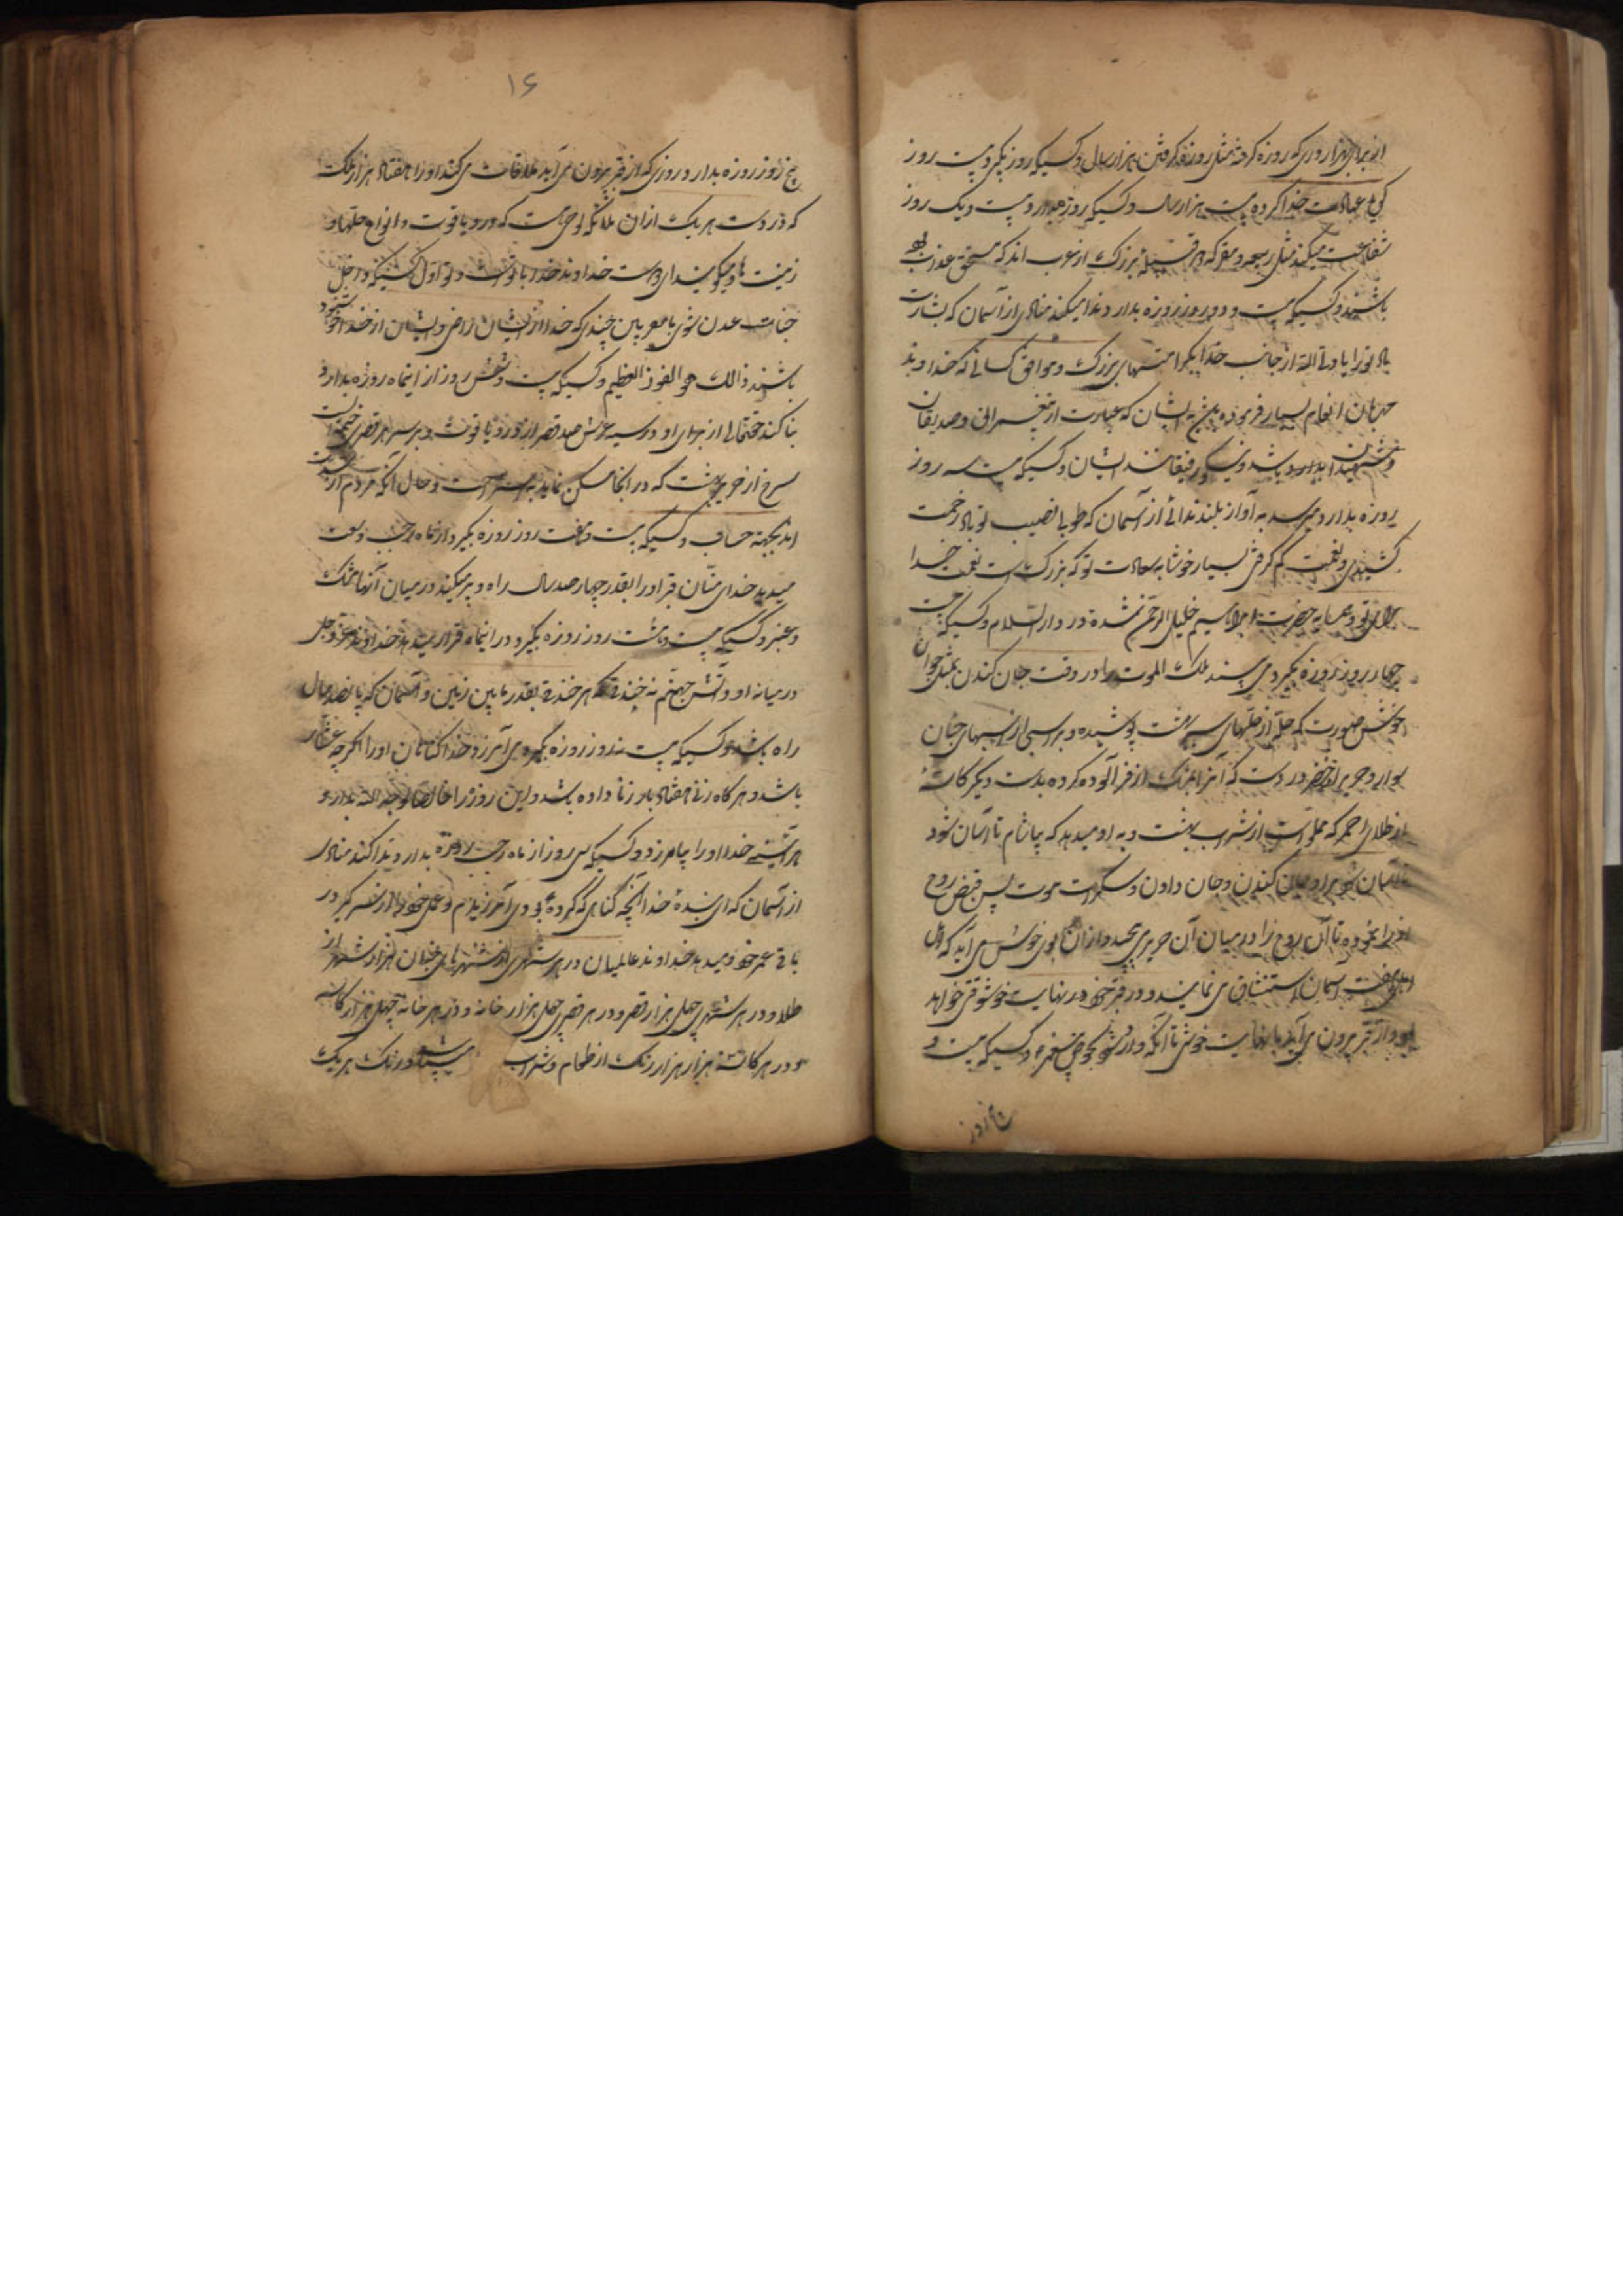 از برای هر روزی که روزه گرفته مثل روزه گرفتن هزار سال و کسیکه روزه بگیرد بیست روز
گویا عبادت خدا کرده بیست هزار سال و کسیکه روزه بدارد بیست و یک روز
شفاعت میکند مثل ربیعه و مضر که دو قبیله بزرگ از عرب اند که مستحق عذاب
باشند و کسیکه بیست و دو روز روزه بدارد ندا میکند منادی از آسمان که بشارت
باد تو را یا ولی الله از جانب خدا بکرامتهای بزرگ و موافق کسانی که خداوند
جهان انعام بسیار فرموده به ایشان که عبارت از پیغمبران و صدیقان
و شهیدان باشد و نیکو رفیقانند ایشان و کسیکه بیست سه روز
روزه بدارد میرسد به آواز بلند ندائی از آسمان که طوبی نصیب تو باد زحمت
کشیدی و نعمت کم گرفتی بسیار خوشا به سعادت تو که بزرگ است نعمت خدا
برای تو و همسایه حضرت ابراهیم خلیل الرحمن شده در دار السلام و کسیکه بیست
چهار روز روزه بگیرد می بیند ملک الموت را در وقت جان کندن بمثل جوان
خوش صورت که حله از حلهای سبز بهشت پوشیده و بر اسبی از اسبهای جنان
سوار و حریر اخضر در دست که آنرا بمشک اذفر آلوده کرده بدست دیگر کاسهٔ
از طلای احمر که مملو است از شراب بهشت و به او میدهد که بیاشام تا آسان شود
آسان شود بر او جان کندن و جان دادن و سکرات موت پس قبض روح
او را نموده تا آن روح را در میان آن حریر می پیچد و از آن بوی خوش می آید که اهل
هفت آسمان استنشاق می نمایند و در قبر خود در نهایت خوشوقتی خواهد
بود و از قبر بیرون می آید با نهایت خوشی تا آنکه وارد شود بحوض پیغمبر و کسیکه بیست و
پنج روز
۱۶
پنج روز روزه بدارد روزی که از قبر بیرون می آید ملاقات می کند او را هفتاد هزار ملک
که در دست هر یک از آن ملائکه لوحی هست که در و یاقوت و انواع حلها و
زینت ها و میگویند ای دوست خداوند خدا با تو است و تو اول کسی که داخل
جنات عدن شوی با مقربین چندی که خدا از ایشان راضی و ایشان از خدا خوشنود
باشند ذالک هو الفوز العظیم و کسیکه بیست و شش روز از اینماه روزه بدارد
بنا کند حقتعالی از برای او در سایه عرش صد قصر از در و یاقوت و بر سر هر قصری خیمه است
سرخ از حریر بهشت که در آنجا مسکن نماید به استراحت و حال آنکه مردم در
اند بجهة حساب و کسیکه بیست و هفت روز روزه بگیرد از ماه رجب وسعت
میدهد خدای منان قبر او را بقدر چهار صد سال راه و پر میکند در میان آنها مشک
و عنبر و کسیکه بیست و هشت روز روزه بگیرد در اینماه قرار میدهد خداوند عز و جل
در میانه او و آتش جهنم نه خندق که هر خندقی بقدر مابین زمین و آسمان که پانصد سال
راه باشد و کسیکه بیست نه روز روزه بگیرد می آمرزد خدا گناهان او را اگر چه عشار
باشد و هر گاه زنی هفتاد بار زنا داده باشد و این روزه را خالصا لوجه الله بدارد
هر آئینه خدا او را بیامرزد و کسیکه سی روز از ماه رجب روزه بدارد ندا کند منادی
از آسمان که ای بندهٔ خدا آنچه گناهی که کرده بودی آمرزیدم و عمل خود را از سر گیر در
باقی عمر خود و میدهد خداوند عالمیان در هر شهری از شهرهای جنان هزار شهر از
طلا و در هر شهر چهل هزار قصر و در هر قصر چهل هزار خانه و در هر خانه چهل هزار کاسه
و در هر کاسه هزار هزار رنگ از طعام و شراب و رنگ هر یک